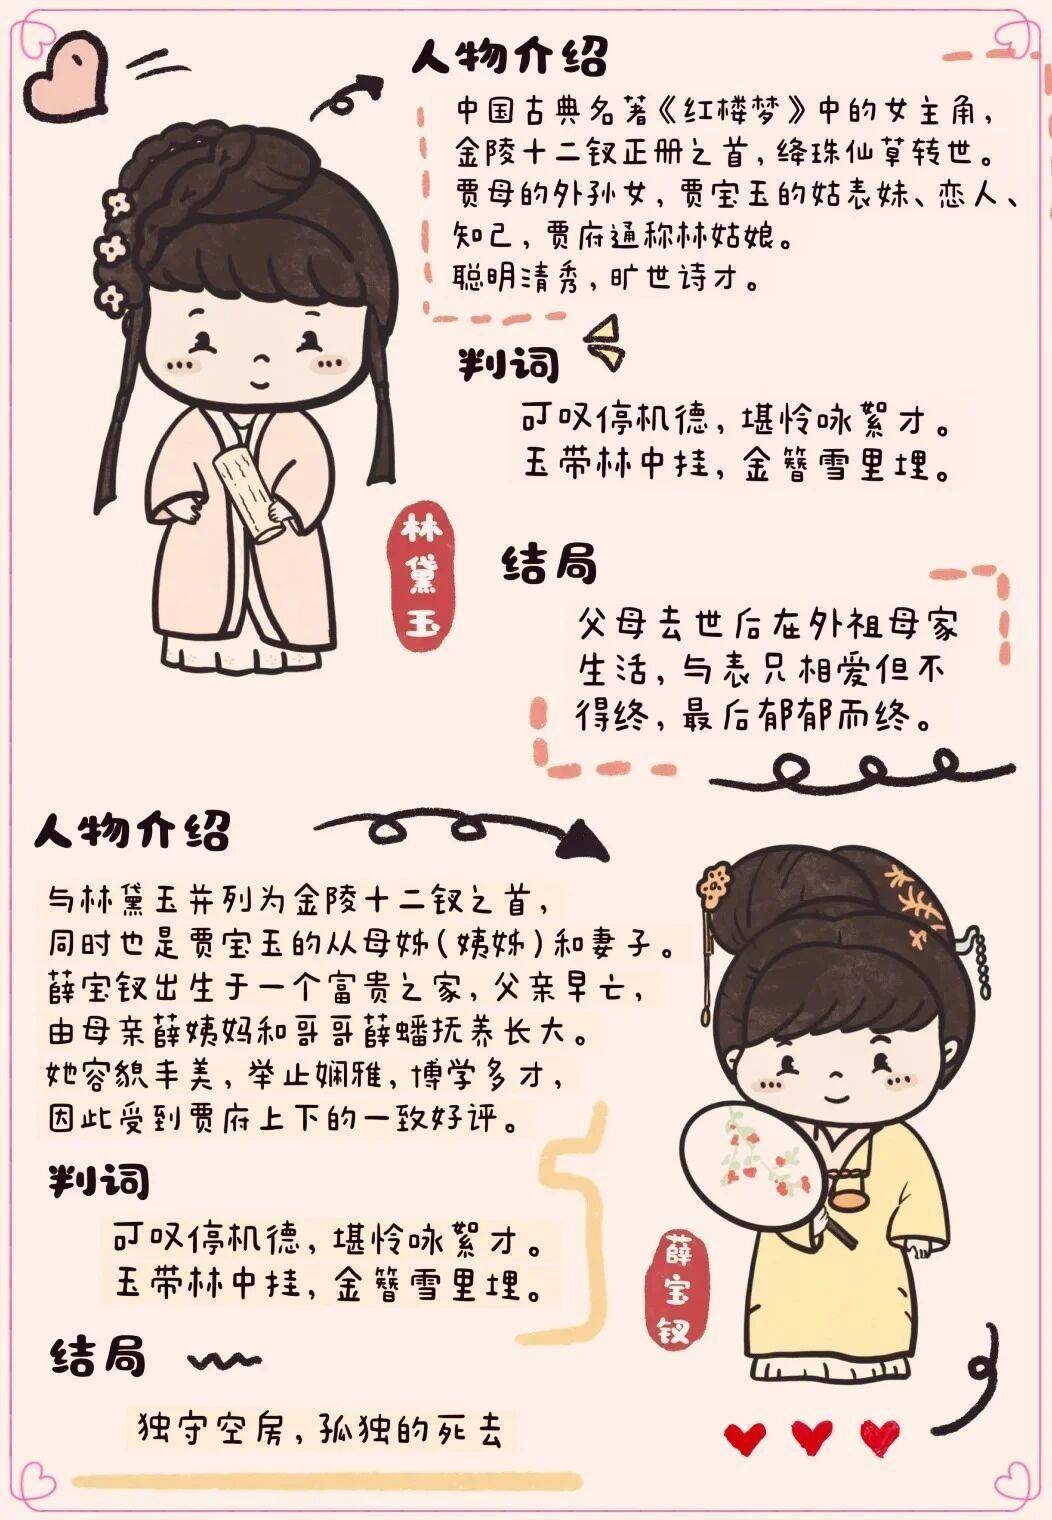 人物介绍
中国古典名著《红楼梦》中的女主角，
金陵十二钗正册之首，绛珠仙草转世。
贾母的外孙女，贾宝玉的姑表妹、恋人、
知己，贾府通称林姑娘。
聪明清秀，旷世诗才。
判词
可叹停机德，堪怜咏絮才。
玉带林中挂，金簪雪里埋。
林黛玉
结局
父母去世后在外祖母家
生活，与表兄相爱但不
得终，最后郁郁而终。
人物介绍
与林黛玉并列为金陵十二钗之首，
同时也是贾宝玉的从母姊（姨姊）和妻子。
薛宝钗出生于一个富贵之家，父亲早亡，
由母亲薛姨妈和哥哥薛蟠抚养长大。
她容貌丰美，举止娴雅，博学多才，
因此受到贾府上下的一致好评。
判词
可叹停机德，堪怜咏絮才。
玉带林中挂，金簪雪里埋。
薛宝钗
结局
独守空房，孤独的死去